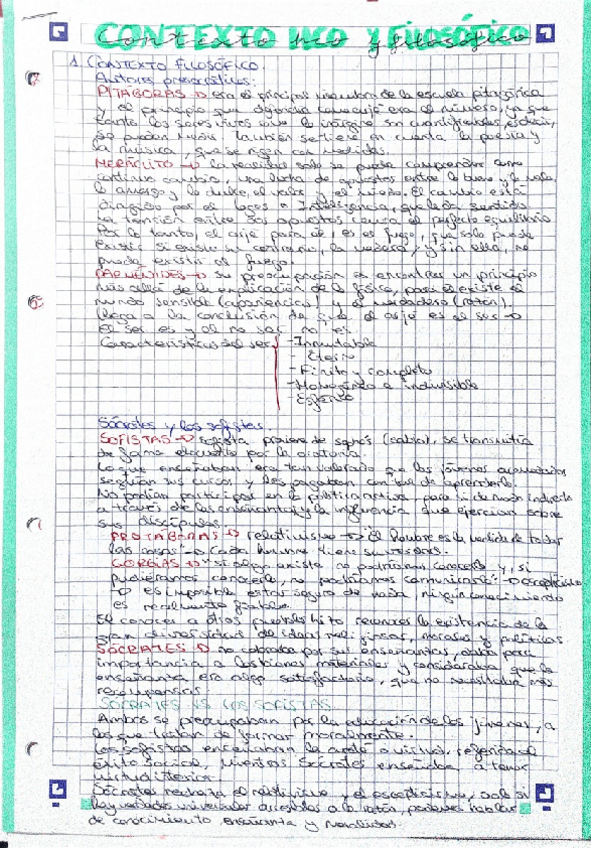 CONTEXTO HCO Y FILOSÓFICO
1. CONTEXTO FILOSÓFICO.
Autores presocráticos:
PITÁGORAS → era el principal miembro de la escuela pitagórica
y el principio que defendía como arjé era el número, ya que
tanto los son cuantificables, es decir,
se pueden medir. También se tiene en cuenta la poesía y
la música, que se rigen con medidas.
HERÁCLITO → la realidad solo se puede comprender como
continuo cambio, una lucha de opuestos entre lo bueno y lo malo,
lo amargo y lo dulce, el valor y el miedo. El cambio está
dirigido por el logos o Inteligencia, que le da sentido
La tensión entre los opuestos causa el perfecto equilibrio
Por lo tanto, el arjé para él, es el fuego, que solo puede
existir si existe su contrario, la madera, y sin ella, no
puede existir el fuego.
PARMÉNIDES → su preocupación es encontrar un principio
más allá de la explicación de la física, para él existe el
mundo sensible (apariencias) y el verdadero (razón).
Llega a la conclusión de que el arjé es el ser →
el ser es y el no ser no es.
Características del ser
- Inmutable
- Eterno
- Finito y completo
- Homogéneo e indivisible
- Esférico
Sócrates y los sofistas.
SOFISTAS → sofista proviene de sophós (sabio), se transmitía
de forma elocuente por la oratoria.
Lo que enseñaban era tan valorado que los jóvenes acomodados
seguían sus cursos y les pagaban con tal de aprenderlo.
No podían participar en la política activa, pero sí de modo indirecto
a través de las enseñanzas y la influencia que ejercían sobre
sus discípulos.
PROTÁGORAS → relativismo → "El hombre es la medida de todas
las cosas" → cada hombre tiene su verdad.
GORGIAS → "si algo existe no podríamos conocerlo y, si
pudiéramos conocerlo, no podríamos comunicarlo" → escepticismo
→ es imposible estar seguro de nada, ningún conocimiento
es realmente fiable.
El conocer a otros pueblos hizo reconocer la existencia de la
gran diversidad de ideas religiosas, morales y políticas.
SÓCRATES → no cobraba por sus enseñanzas, daba poca
importancia a los bienes materiales y consideraba que la
enseñanza era algo satisfactorio, que no necesitaba más
recompensas.
SÓCRATES VS LOS SOFISTAS
Ambos se preocupaban por la educación de los jóvenes, a
los que tratan de formar moralmente.
Los sofistas enseñaban la areté o virtud, referida al
éxito social, mientras Sócrates enseñaba a tener
virtud interior.
Sócrates rechaza el relativismo y el escepticismo, solo si
hay verdades universales accesibles a la razón, podemos hablar
de conocimiento, enseñanza y moralidad.